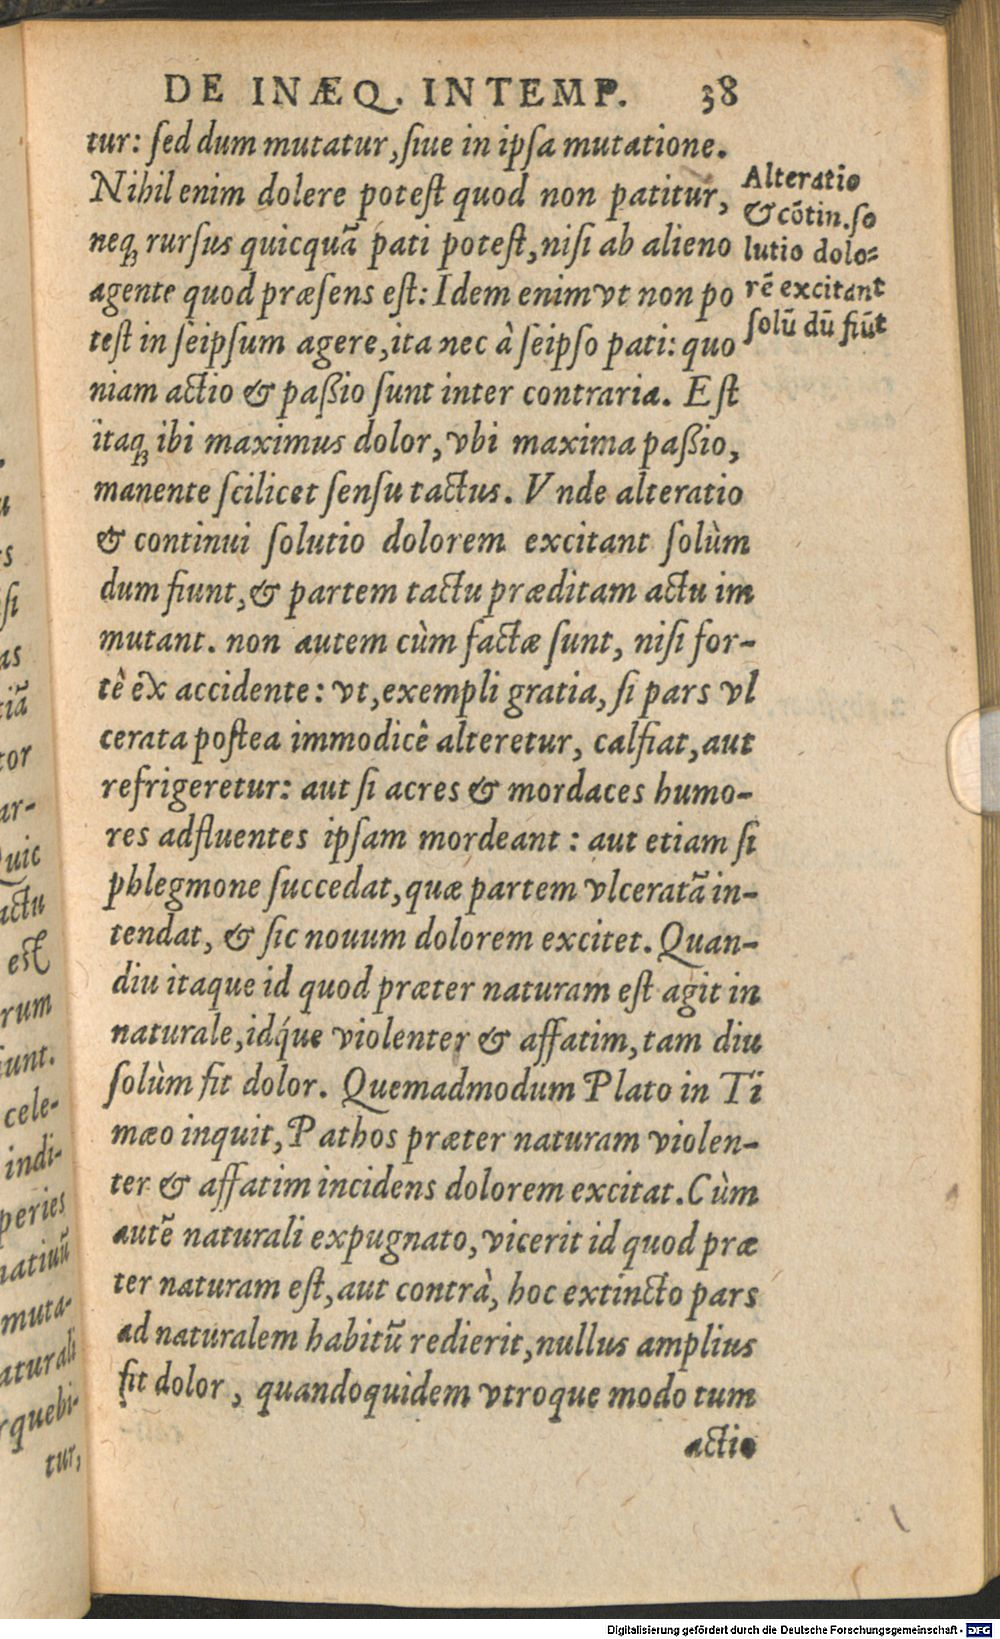 DE INÆQ. INTEMP. 38
tur: ſed dum mutatur, ſiue in ipſa mutatione.
Nihil enim dolere poteſt quod non patitur,
neq́ꝫ rurſus quicquã pati poteſt, niſi ab alieno
agente quod præſens eſt: Idem enim vt non po
teſt in ſeipſum agere, ita nec à ſeipſo pati: quo
niam actio & paßio ſunt inter contraria. Eſt
itaqꝫ ibi maximus dolor, vbi maxima paßio,
manente ſcilicet ſenſu tactus. Vnde alteratio
& continui ſolutio dolorem excitant ſolùm
dum fiunt, & partem tactu præditam actu im
mutant. non autem cùm factæ ſunt, niſi for-
tè ex accidente: vt, exempli gratia, ſi pars vl
cerata poſtea immodicê alteretur, calfiat, aut
refrigeretur: aut ſi acres & mordaces humo-
res adfluentes ipſam mordeant: aut etiam ſi
phlegmone ſuccedat, quæ partem vlceratã in-
tendat, & ſic nouum dolorem excitet. Quan-
diu itaque id quod præter naturam eſt agit in
naturale, idq́ue violenter & affatim, tam diu
ſolùm fit dolor. Quemadmodum Plato in Ti
mæo inquit, Pathos præter naturam violen-
ter & affatim incidens dolorem excitat. Cùm
autẽ naturali expugnato, vicerit id quod præ
ter naturam eſt, aut contrà, hoc extincto pars
ad naturalem habitũ redierit, nullus amplius
fit dolor, quandoquidem vtroque modo tum
actio
Alteratio
& cõtin. ſo
lutio dolo-
rẽ excitant
ſolũ dũ fiũt
u
s
ſi
as
tiã
tor
ar-
Quic
actu
eſt
rum
iunt.
cele-
indi-
peries
natiuũ
muta-
aturali
rquebi-
tur,
Digitalisierung gefördert durch die Deutsche Forschungsgemeinschaft - DFG